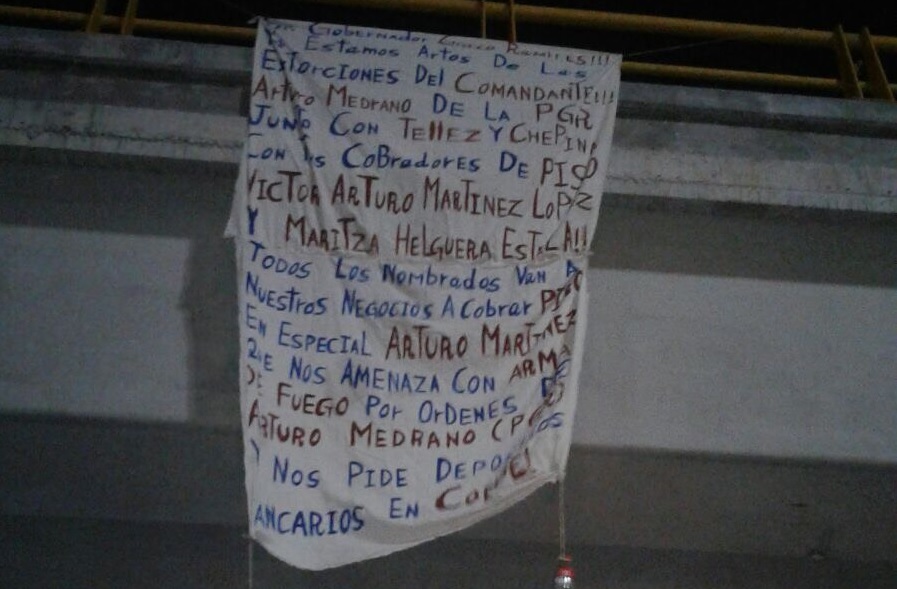 Gobernador Ramires!!!
Ya Estamos Artos De Las
Extorciones Del Comandante!!!
Arturo Medrano De La PGR
Junto Con Tellez Y Chepina
Con los Cobradores De Piso
Victor Arturo Martinez Lopez
Y Maritza Helguera Estela!!
Todos Los Nombrados Van A
Nuestros Negocios A Cobrar Piso
En Especial Arturo Martinez
Que Nos Amenaza Con Arma
De Fuego Por Ordenes De
Arturo Medrano
Y Nos Pide Depositos
ancarios En